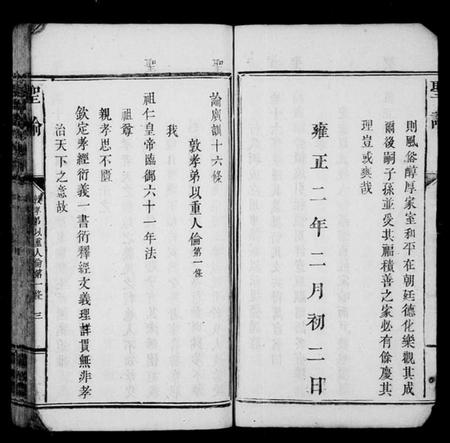 則風俗醇厚家室和平在朝廷德化樂觀其成
爾後嗣子孫並受其福積善之家必有餘慶其
理豈或爽哉
雍正二年二月初二日
聖諭
諭廣訓十六條
敦孝弟以重人倫第一條
我
祖仁皇帝臨御六十一年法
祖尊
親孝思不匱
欽定孝經衍義一書衍釋經文義理詳貫無非孝
治天下之意故
聖諭
敦孝弟以重人倫第一條 三